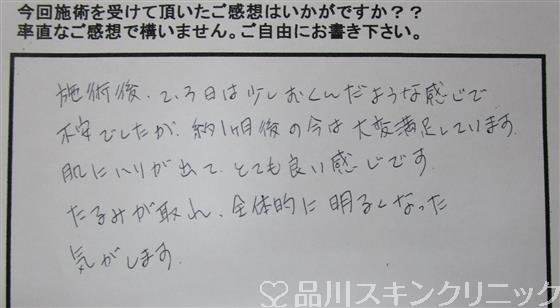 今回施術を受けて頂いたご感想はいかがですか？？
率直なご感想で構いません。ご自由にお書き下さい。
施術後、2、3日は少しむくんだような感じで
不安でしたが、約1ヶ月後の今は大変満足しています。
肌にハリが出て、とても良い感じです。
たるみが取れ、全体的に明るくなった
気がします。
品川スキンクリニック